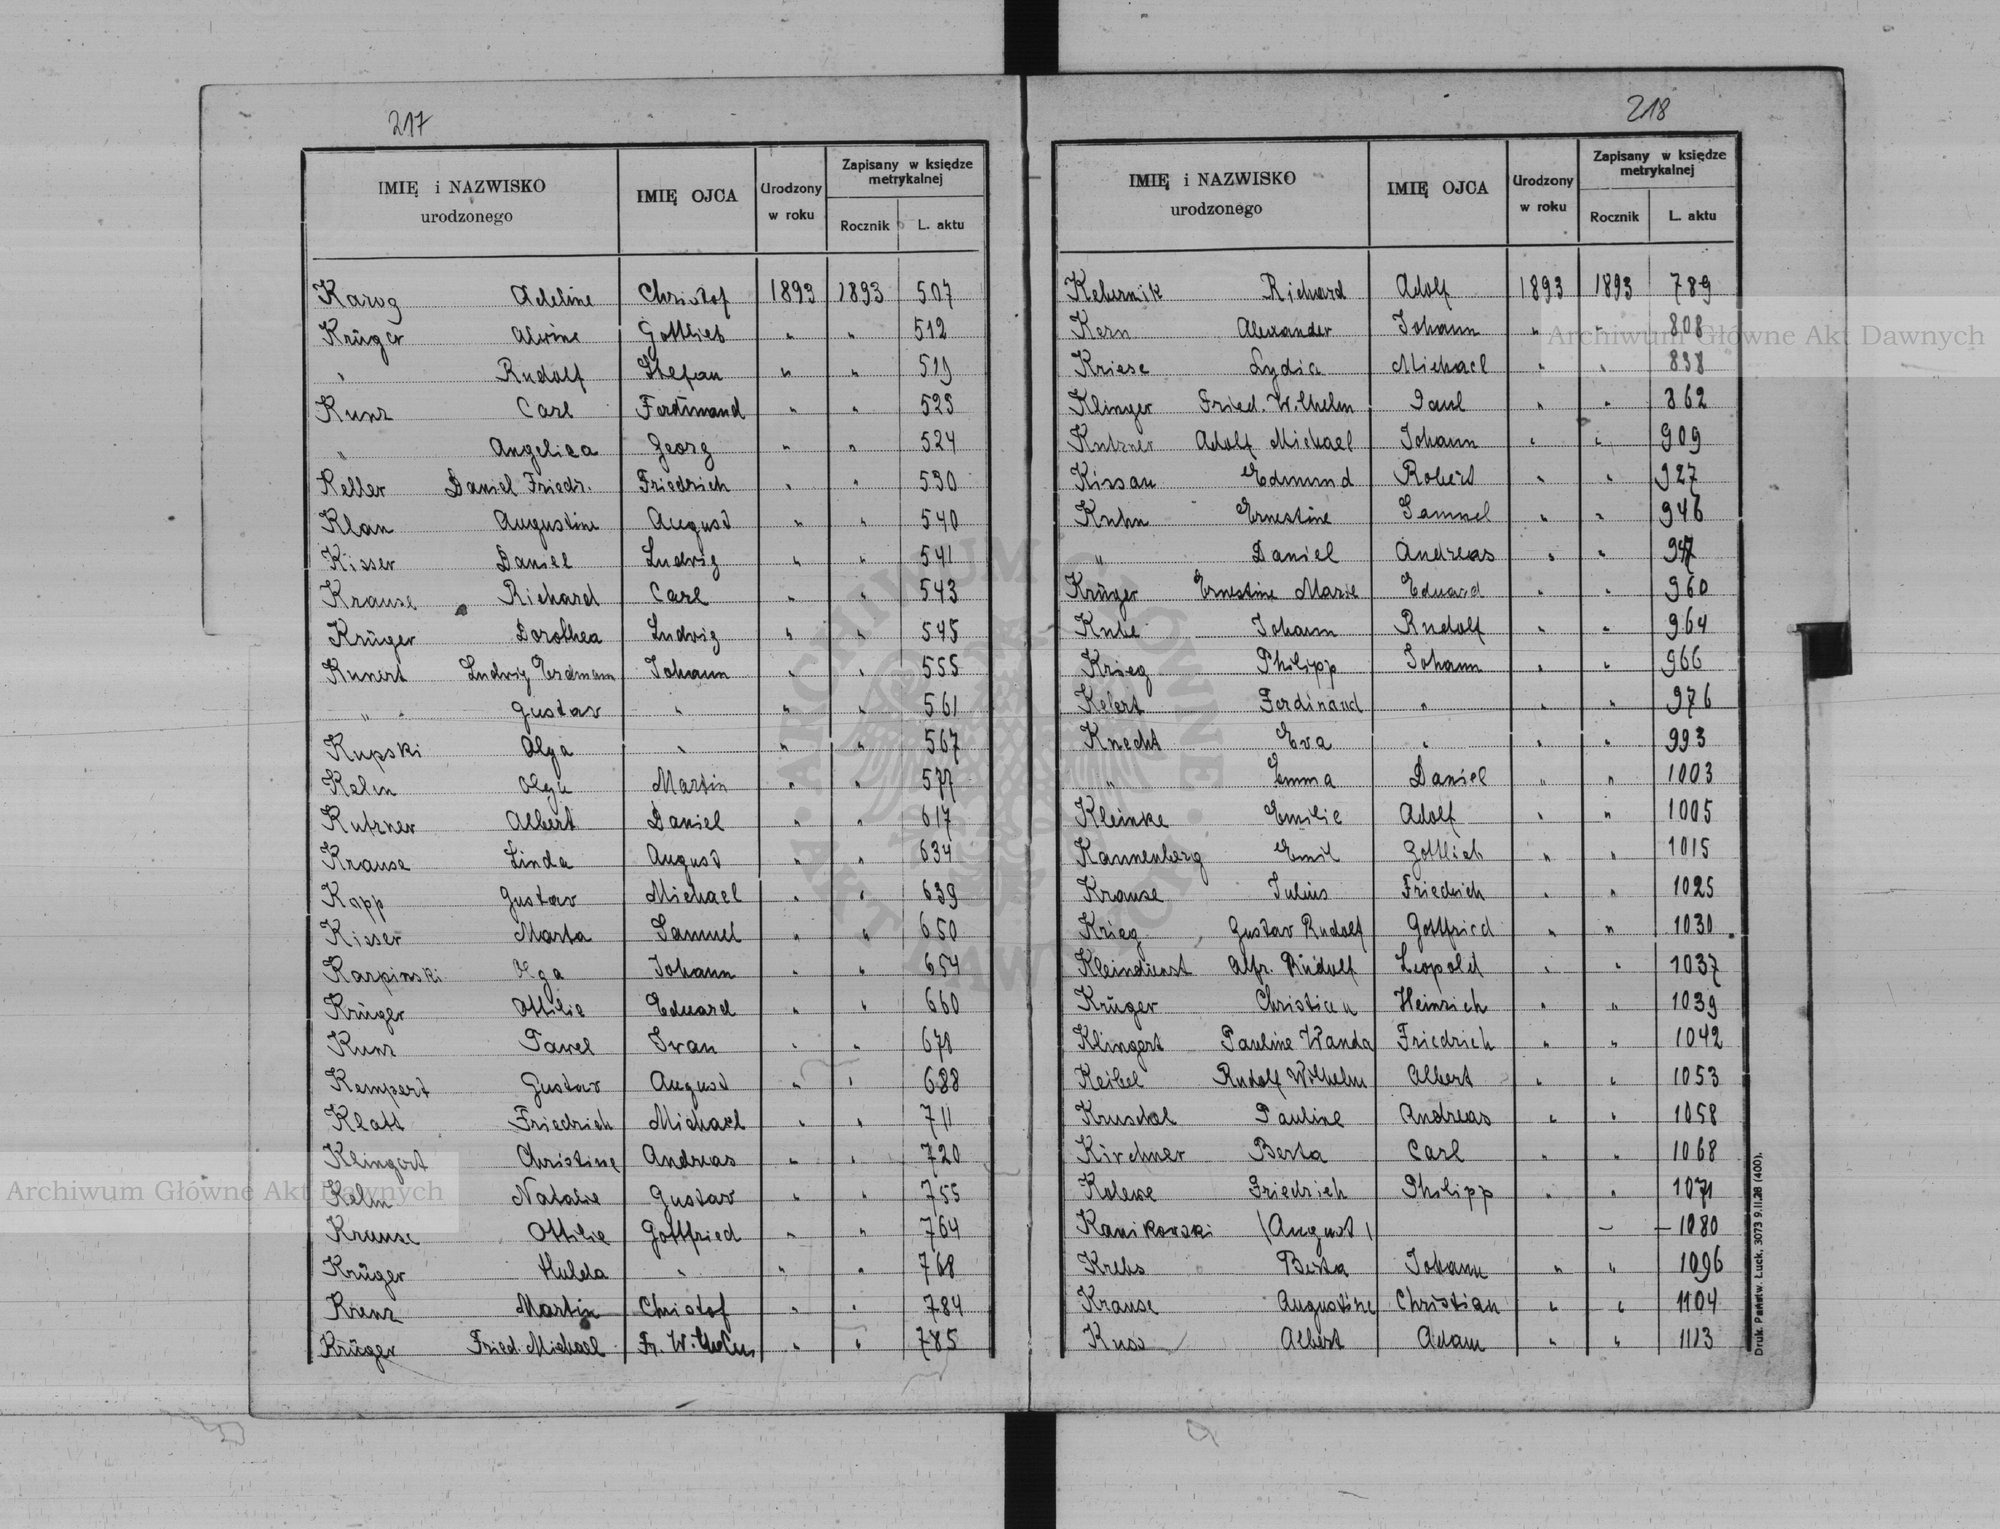 217
IMIĘ i NAZWISKO urodzonego IMIĘ OJCA Urodzony w roku Zapisany w księdze metrykalnej Rocznik L. aktu
Karug Adeline Christof 1893 1893 507
Krüger Alwine Gottlieb " " 512
" Rudolf Stefan " " 519
Kunz Carl Ferdinand " " 523
" Angelica Georg " " 524
Keller Daniel Friedr. Friedrich " " 530
Klan Augustine August " " 540
Kisser Daniel Ludwig " " 541
Krause Richard Carl " " 543
Krüger Dorothea Ludwig " " 545
Kunert Ludwig Erdmann Johann " " 555
" Gustav " " " 561
Kupski Olga " " " 567
Kelm Olga Martin " " 577
Kutzner Albert Daniel " " 617
Krause Linda August " " 634
Kapp Gustav Michael " " 639
Kisser Marta Samuel " " 650
Karpinski Olga Johann " " 654
Krüger Ottilie Eduard " " 660
Kunz Pawel Iwan " " 678
Kempert Gustav August " " 688
Klatt Friedrich Michael " " 711
Klingert Christine Andreas " " 720
Kelm Natalie Gustav " " 755
Krause Ottilie Gottfried " " 764
Krüger Hulda " " " 768
Krenz Martin Christof " " 784
Krüger Fried. Michael Fr. Wilhelm " " 785
218
IMIĘ i NAZWISKO urodzonego IMIĘ OJCA Urodzony w roku Zapisany w księdze metrykalnej Rocznik L. aktu
Kebernik Richard Adolf 1893 1893 789
Kern Alexander Johann " " 808
Kriese Lydia Michael " " 838
Klinger Fried. Wilhelm Paul " " 862
Kutzner Adolf Michael Johann " " 909
Kissau Edmund Robert " " 927
Kuhn Ernestine Samuel " " 946
" Daniel Andreas " " 947
Krüger Ernestine Marie Eduard " " 960
Kube Johann Rudolf " " 964
Krieg Philipp Johann " " 966
Kelert Ferdinand " " " 976
Knecht Eva " " " 993
" Emma Daniel " " 1003
Kleinke Emilie Adolf " " 1005
Kannenberg Emil Gottlieb " " 1015
Krause Julius Friedrich " " 1025
Krieg Gustav Rudolf Gottfried " " 1030
Kleindienst Alfr. Rudolf Leopold " " 1037
Krüger Christian Heinrich " " 1039
Klingert Pauline Wanda Friedrich " " 1042
Keibel Rudolf Wilhelm Albert " " 1053
Kruschel Pauline Andreas " " 1058
Kirchner Berta Carl " " 1068
Kolewe Friedrich Philipp " " 1071
Kanikowski (August) – – 1080
Krebs Berta Johann " " 1096
Krause Augustine Christian " " 1104
Kuss Albert Adam " " 1113
Druk. Państw. Łuck. 3073 9.II.28 (400).
Archiwum Główne Akt Dawnych
Archiwum Główne Akt Dawnych
ARCHIWUM GŁÓWNE AKT DAWNYCH